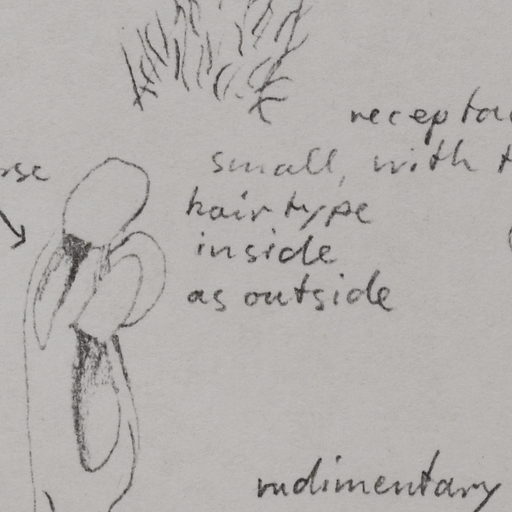 small, with
hair type
inside
as outside
rudimentary